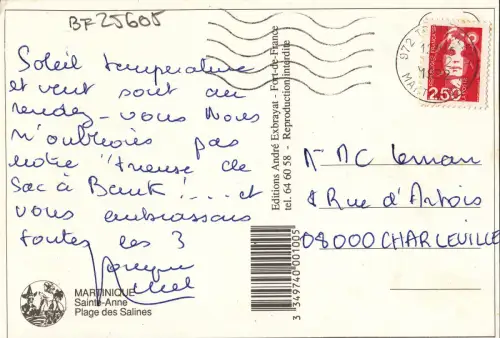 BF25605
Soleil température
et vent sont au
rendez-vous Nous
n'oublions pas
notre "treuse de
Sac à Bank!... et
vous embrassons
toutes les 3
MARTINIQUE
Sainte-Anne
Plage des Salines
Editions André Exbrayat - Fort-de-France
tel. 64 60 58 - Reproduction interdite
3 349740 001005
972
2,50
8 Rue d'Artois
08000 CHARLEVILLE